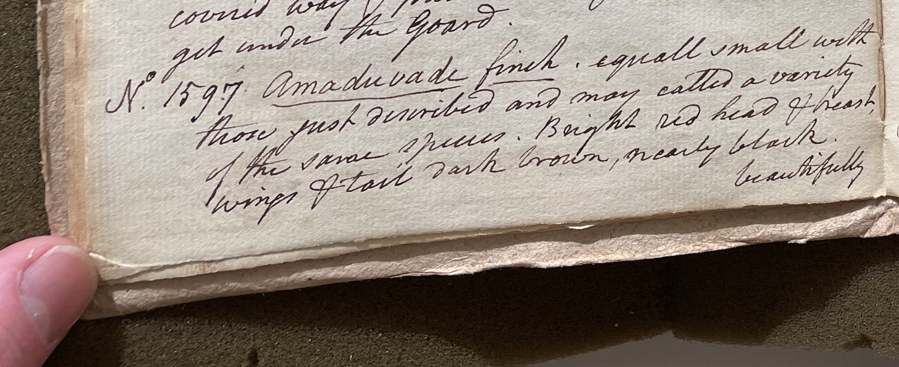 covered way &
get under the Goard.
No. 1597 Amaduvade finch. equall small with
those just described and may called a variety
of the same species. Bright red head & breast,
wings & tail dark brown, nearly black.
beautifully